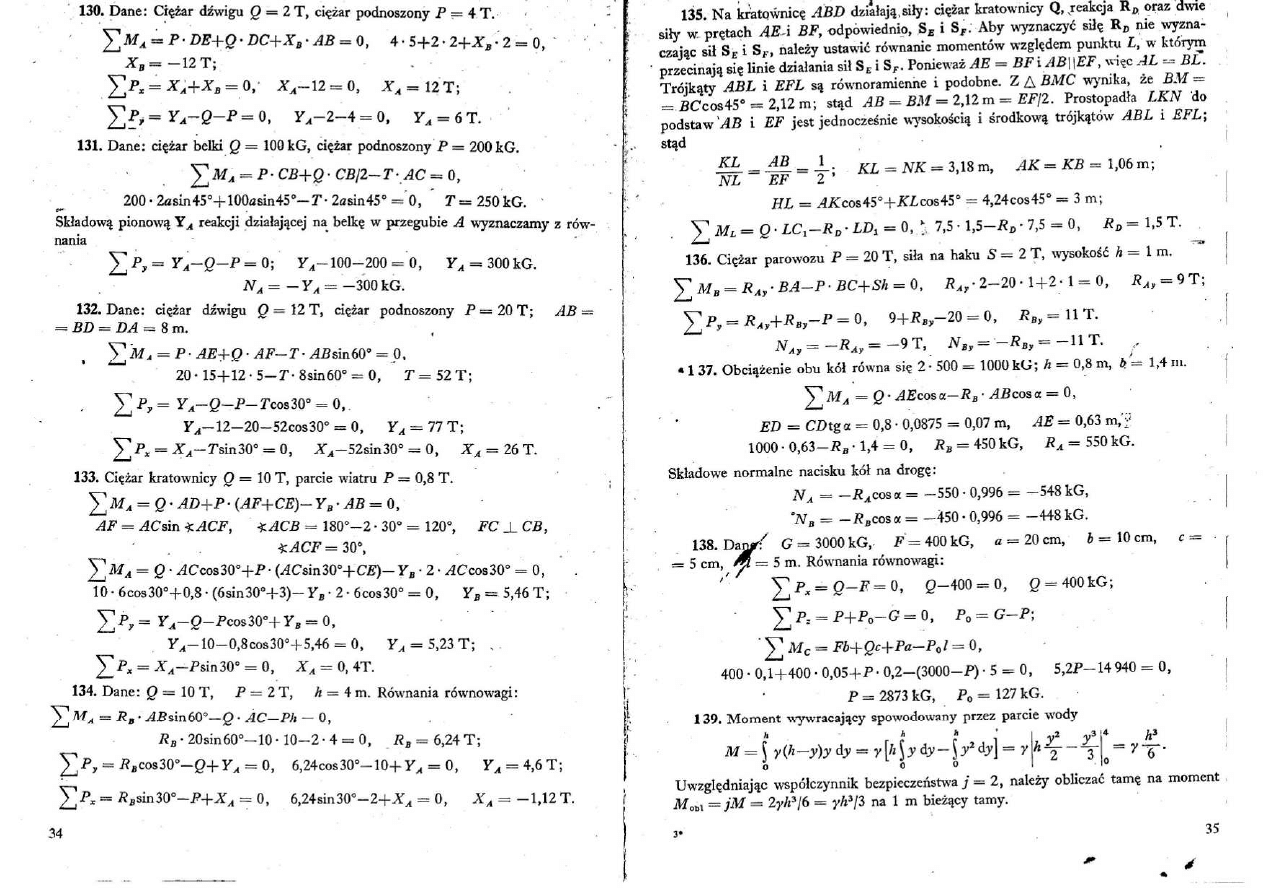 130. Dane: Ciężar dźwigu Q = 2 T, ciężar podnoszony P = 4 T.
∑M_A = P · DE+Q · DC+X_B · AB = 0, 4 · 5+2 · 2+X_B · 2 = 0,
X_B = −12 T;
∑P_x = X_A+X_B = 0, X_A−12 = 0, X_A = 12 T;
∑P_y = Y_A−Q−P = 0, Y_A−2−4 = 0, Y_A = 6 T.
131. Dane: ciężar belki Q = 100 kG, ciężar podnoszony P = 200 kG.
∑M_A = P · CB+Q · CB/2−T · AC = 0,
200 · 2a sin 45°+100a sin 45°−T · 2a sin 45° = 0, T = 250 kG.
Składową pionową Y_A reakcji działającej na belkę w przegubie A wyznaczamy z rów-
nania
∑P_y = Y_A−Q−P = 0; Y_A−100−200 = 0, Y_A = 300 kG.
N_A = −Y_A = −300 kG.
132. Dane: ciężar dźwigu Q = 12 T, ciężar podnoszony P = 20 T; AB =
= BD = DA = 8 m.
∑M_A = P · AE+Q · AF−T · AB sin 60° = 0,
20 · 15+12 · 5−T · 8 sin 60° = 0, T = 52 T;
∑P_y = Y_A−Q−P−T cos 30° = 0,
Y_A−12−20−52 cos 30° = 0, Y_A = 77 T;
∑P_x = X_A−T sin 30° = 0, X_A−52 sin 30° = 0, X_A = 26 T.
133. Ciężar kratownicy Q = 10 T, parcie wiatru P = 0,8 T.
∑M_A = Q · AD+P · (AF+CE)−Y_B · AB = 0,
AF = AC sin ∢ACF, ∢ACB = 180°−2 · 30° = 120°, FC ⊥ CB,
∢ACF = 30°,
∑M_A = Q · AC cos 30°+P · (AC sin 30°+CE)−Y_B · 2 · AC cos 30° = 0,
10 · 6 cos 30°+0,8 · (6 sin 30°+3)−Y_B · 2 · 6 cos 30° = 0, Y_B = 5,46 T;
∑P_y = Y_A−Q−P cos 30°+Y_B = 0,
Y_A−10−0,8 cos 30°+5,46 = 0, Y_A = 5,23 T;
∑P_x = X_A−P sin 30° = 0, X_A = 0, 4T.
134. Dane: Q = 10 T, P = 2 T, h = 4 m. Równania równowagi:
∑M_A = R_B · AB sin 60°−Q · AC−Ph − 0,
R_B · 20 sin 60°−10 · 10−2 · 4 = 0, R_B = 6,24 T;
∑P_y = R_B cos 30°−Q+Y_A = 0, 6,24 cos 30°−10+Y_A = 0, Y_A = 4,6 T;
∑P_x = R_B sin 30°−P+X_A = 0, 6,24 sin 30°−2+X_A = 0, X_A = −1,12 T.
34
135. Na kratownicę ABD działają siły: ciężar kratownicy Q, reakcja R_D oraz dwie
siły w prętach AE i BF, odpowiednio, S_E i S_F. Aby wyznaczyć siłę R_D nie wyzna-
czając sił S_E i S_F, należy ustawić równanie momentów względem punktu L, w którym
przecinają się linie działania sił S_E i S_F. Ponieważ AE = BF i AB||EF, więc AL = BL.
Trójkąty ABL i EFL są równoramienne i podobne. Z △ BMC wynika, że BM =
= BC cos 45° = 2,12 m; stąd AB = BM = 2,12 m = EF/2. Prostopadła LKN do
podstaw AB i EF jest jednocześnie wysokością i środkową trójkątów ABL i EFL;
stąd
KL/NL = AB/EF = 1/2; KL = NK = 3,18 m, AK = KB = 1,06 m;
HL = AK cos 45°+KL cos 45° = 4,24 cos 45° = 3 m;
∑M_L = Q · LC₁−R_D · LD₁ = 0, 7,5 · 1,5−R_D · 7,5 = 0, R_D = 1,5 T.
136. Ciężar parowozu P = 20 T, siła na haku S = 2 T, wysokość h = 1 m.
∑M_B = R_Ay · BA−P · BC+Sh = 0, R_Ay · 2−20 · 1+2 · 1 = 0, R_Ay = 9 T;
∑P_y = R_Ay+R_By−P = 0, 9+R_By−20 = 0, R_By = 11 T.
N_Ay = −R_Ay = −9 T, N_By = −R_By = −11 T.
137. Obciążenie obu kół równa się 2 · 500 = 1000 kG; h = 0,8 m, b = 1,4 m.
∑M_A = Q · AE cos α−R_B · AB cos α = 0,
ED = CD tg α = 0,8 · 0,0875 = 0,07 m, AE = 0,63 m,
1000 · 0,63−R_B · 1,4 = 0, R_B = 450 kG, R_A = 550 kG.
Składowe normalne nacisku kół na drogę:
N_A = −R_A cos α = −550 · 0,996 = −548 kG,
N_B = −R_B cos α = −450 · 0,996 = −448 kG.
138. Dane: G = 3000 kG, F = 400 kG, a = 20 cm, b = 10 cm, c =
= 5 cm, = 5 m. Równania równowagi:
∑P_x = Q−F = 0, Q−400 = 0, Q = 400 kG;
∑P_z = P+P₀−G = 0, P₀ = G−P;
∑M_C = Fb+Qc+Pa−P₀l = 0,
400 · 0,1+400 · 0,05+P · 0,2−(3000−P) · 5 = 0, 5,2P−14 940 = 0,
P = 2873 kG, P₀ = 127 kG.
139. Moment wywracający spowodowany przez parcie wody
M = ∫₀ʰ γ(h−y)y dy = γ[h ∫₀ʰ y dy−∫₀ʰ y² dy] = γ |h y²/2 − y³/3|₀⁴ = γ h³/6.
Uwzględniając współczynnik bezpieczeństwa j = 2, należy obliczać tamę na moment
M_obl = jM = 2γh³/6 = γh³/3 na 1 m bieżący tamy.
3*
35